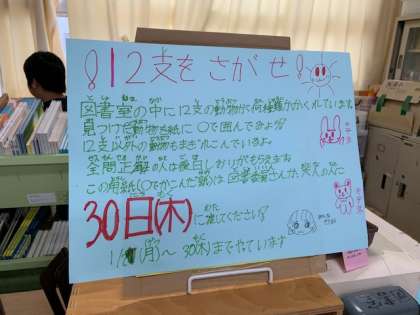 !12支をさがせ!
図書室の中に12支の動物が何種類かかくれています。
見つけた動物を紙に〇で囲んでみよう!
12支以外の動物もまぎれこんでいるよ。
全問正解の人は後日しおりがもらえます。
この用紙(〇でかこんだ紙)は図書委員さんか、
30日(木)
に渡してください!
(月)～30(木)までやっています